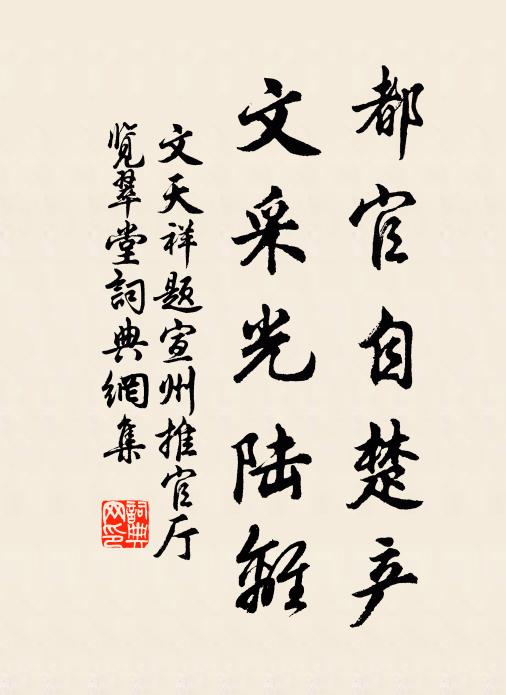 都官自楚产
文采光陆离
文天祥题宣州推官厅
览翠堂詞典網集
詞典网印